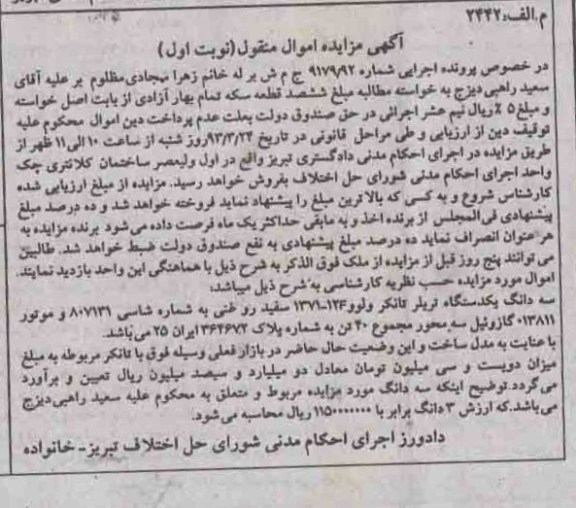 م.الف:۲۴۴۲
آگهی مزایده اموال منقول(نوبت اول)
در خصوص پرونده اجرایی شماره ۹۱۷۹/۹۲ ج م ش بر له خانم زهرا میجادی مظلوم بر علیه آقای
سعید راهبی دیزج به خواسته مطالبه مبلغ ششصد قطعه سکه تمام بهار آزادی از بابت اصل خواسته
و مبلغ ۵ ٪ ریال نیم عشر اجرائی در حق صندوق دولت بعلت عدم پرداخت دین اموال محکوم علیه
توقیف دین از ارزیابی و طی مراحل قانونی در تاریخ ۹۳/۳/۲۴روز شنبه از ساعت ۱۰ الی۱۱ ظهر از
طریق مزایده در اجرای احکام مدنی دادگستری تبریز واقع در اول ولیعصر ساختمان کلانتری جک
واحد اجرای احکام مدنی شورای حل اختلاف بفروش خواهد رسید. مزایده از مبلغ ارزیابی شده
کارشناس شروع و به کسی که بالاترین مبلغ را پیشنهاد نماید فروخته خواهد شد و ده درصد مبلغ
پیشنهادی فی المجلس از برنده اخذ و به مابقی حداکثر یک ماه فرصت داده می شود برنده مزایده به
هر عنوان انصراف نماید ده درصد مبلغ پیشنهادی به نفع صندوق دولت ضبط خواهد شد. طالبین
می توانند پنج روز قبل از مزایده از ملک فوق الذکر به شرح ذیل با هماهنگی این واحد بازدید نمایند.
اموال مورد مزایده حسب نظریه کارشناسی به شرح ذیل میباشد:
سه دانگ یکدستگاه تریلر تانکر ولوو۱۲۶-۱۳۷۱ سفید رو غنی به شماره شاسی ۸۰۷۱۳۱ و موتور
۰۱۳۸۱۱ گازوئیل سه محور مجموع ۴۰ تن به شماره پلاک ۳۶۴۶۷۲ ایران ۲۵ می باشد.
با عنایت به مدل ساخت و این وضعیت حال حاضر در بازار فعلی وسیله فوق با تانکر مربوطه به مبلغ
میزان دویست و سی میلیون تومان معادل دو میلیارد و سیصد میلیون ریال تعیین و برآورد
می گردد.توضیح اینکه سه دانگ مورد مزایده مربوط و متعلق به محکوم علیه سعید راهبی دیزج
می باشد.که ارزش ۳ دانگ برابر با ۱۱۵۰۰۰۰۰۰۰ ریال محاسبه می شود.
دادورز اجرای احکام مدنی شورای حل اختلاف تبریز-خانواده